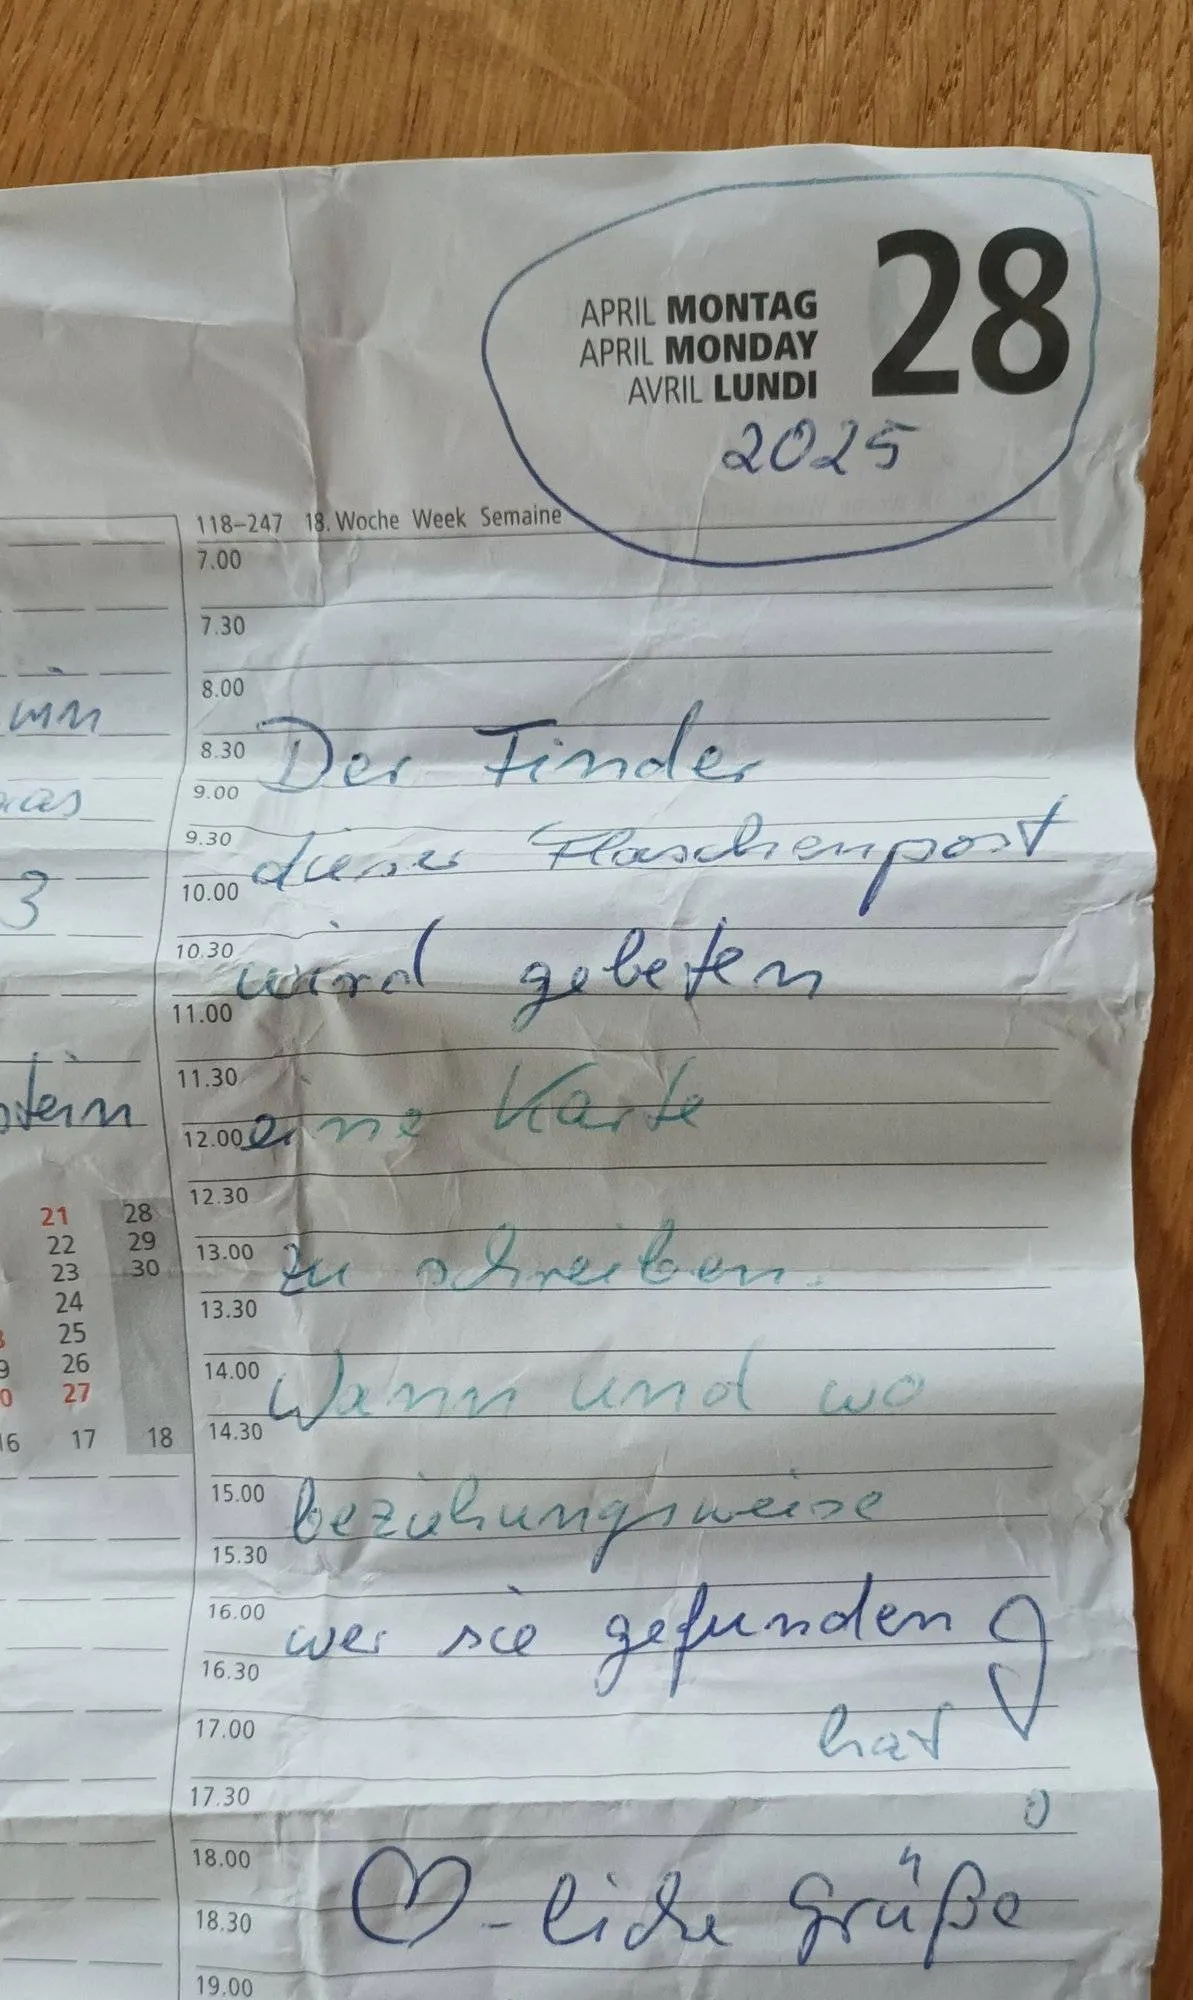 APRIL MONTAG 28
APRIL MONDAY
AVRIL LUNDI
2025
118–247 18. Woche Week Semaine
7.00
7.30
8.00
8.30 Der Finder
9.00
9.30 dieser Flaschenpost
10.00
10.30 wird gebeten
11.00
11.30
12.00 eine Karte
12.30
13.00 zu schreiben.
13.30
14.00 Wann und wo
14.30
15.00 beziehungsweise
15.30
16.00 wer sie gefunden
16.30
17.00 hat!
17.30
18.00
18.30 ♡-liche Grüße
19.00
3
stein
21 28
22 29
23 30
24
25
26
27
16 17 18